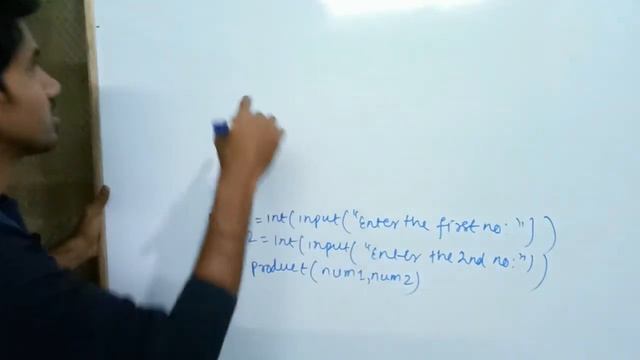 = int(input("Enter the first no: "))
2 = int(input("Enter the 2nd no:"))
product(num1,num2)